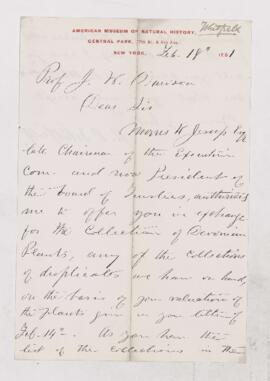 Whitfield
AMERICAN MUSEUM OF NATURAL HISTORY,
CENTRAL PARK, 77th St. & 8th Ave.
NEW YORK, Feb. 18th 1881
Prof J. W. Dawson
Dear Sir
Morris K Jesup Esq
late Chairman of the Executive
Com. and now President of
the board of Trustees, authorizes
me to offer you in exchange
for the Collection of Devonian
Plants, any of the collections
of duplicates we have on hand,
on the basis of your valuation of
the plants given in your letter of
Feb. 14th. As you have the
list of the collections in the